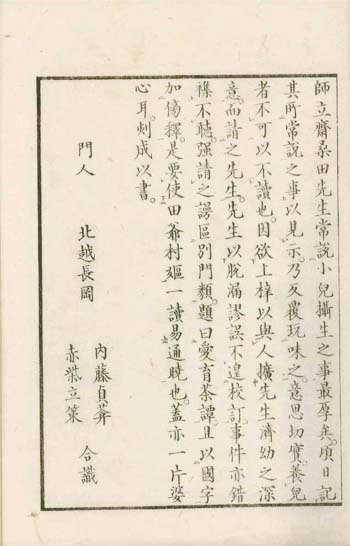 師立齋桑田先生常説小兒攝生之事最厚矣頃日記
其所常説之事以見示乃反覆玩味之意思切實養兒
者不可以不讀也因欲上梓以與人擴先生濟幼之深
意而請之先生先生以脱漏謬誤不遑校訂事件亦錯
襍不聴強請之謾區別門類題曰愛育茶譚且以國字
加傍釋是要使田爺村嫗一讀易通曉也蓋亦一片婆
心耳刻成以書
門人 北越長岡
内藤貞
赤柴立策
合識